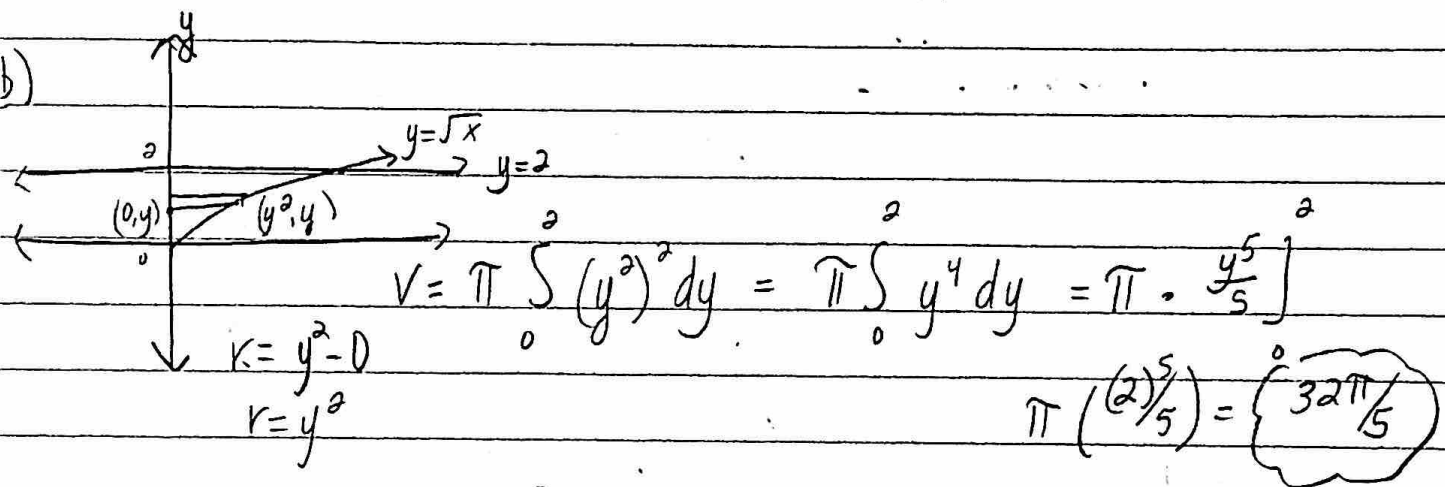 b)
y
y=√x
2
y=2
(0,y) (y²,y)
0
V = π ∫₀² (y²)² dy = π ∫₀² y⁴ dy = π · y⁵/5 ]₀²
r = y² - 0
r = y²
π ((2)⁵/5) = 32π/5